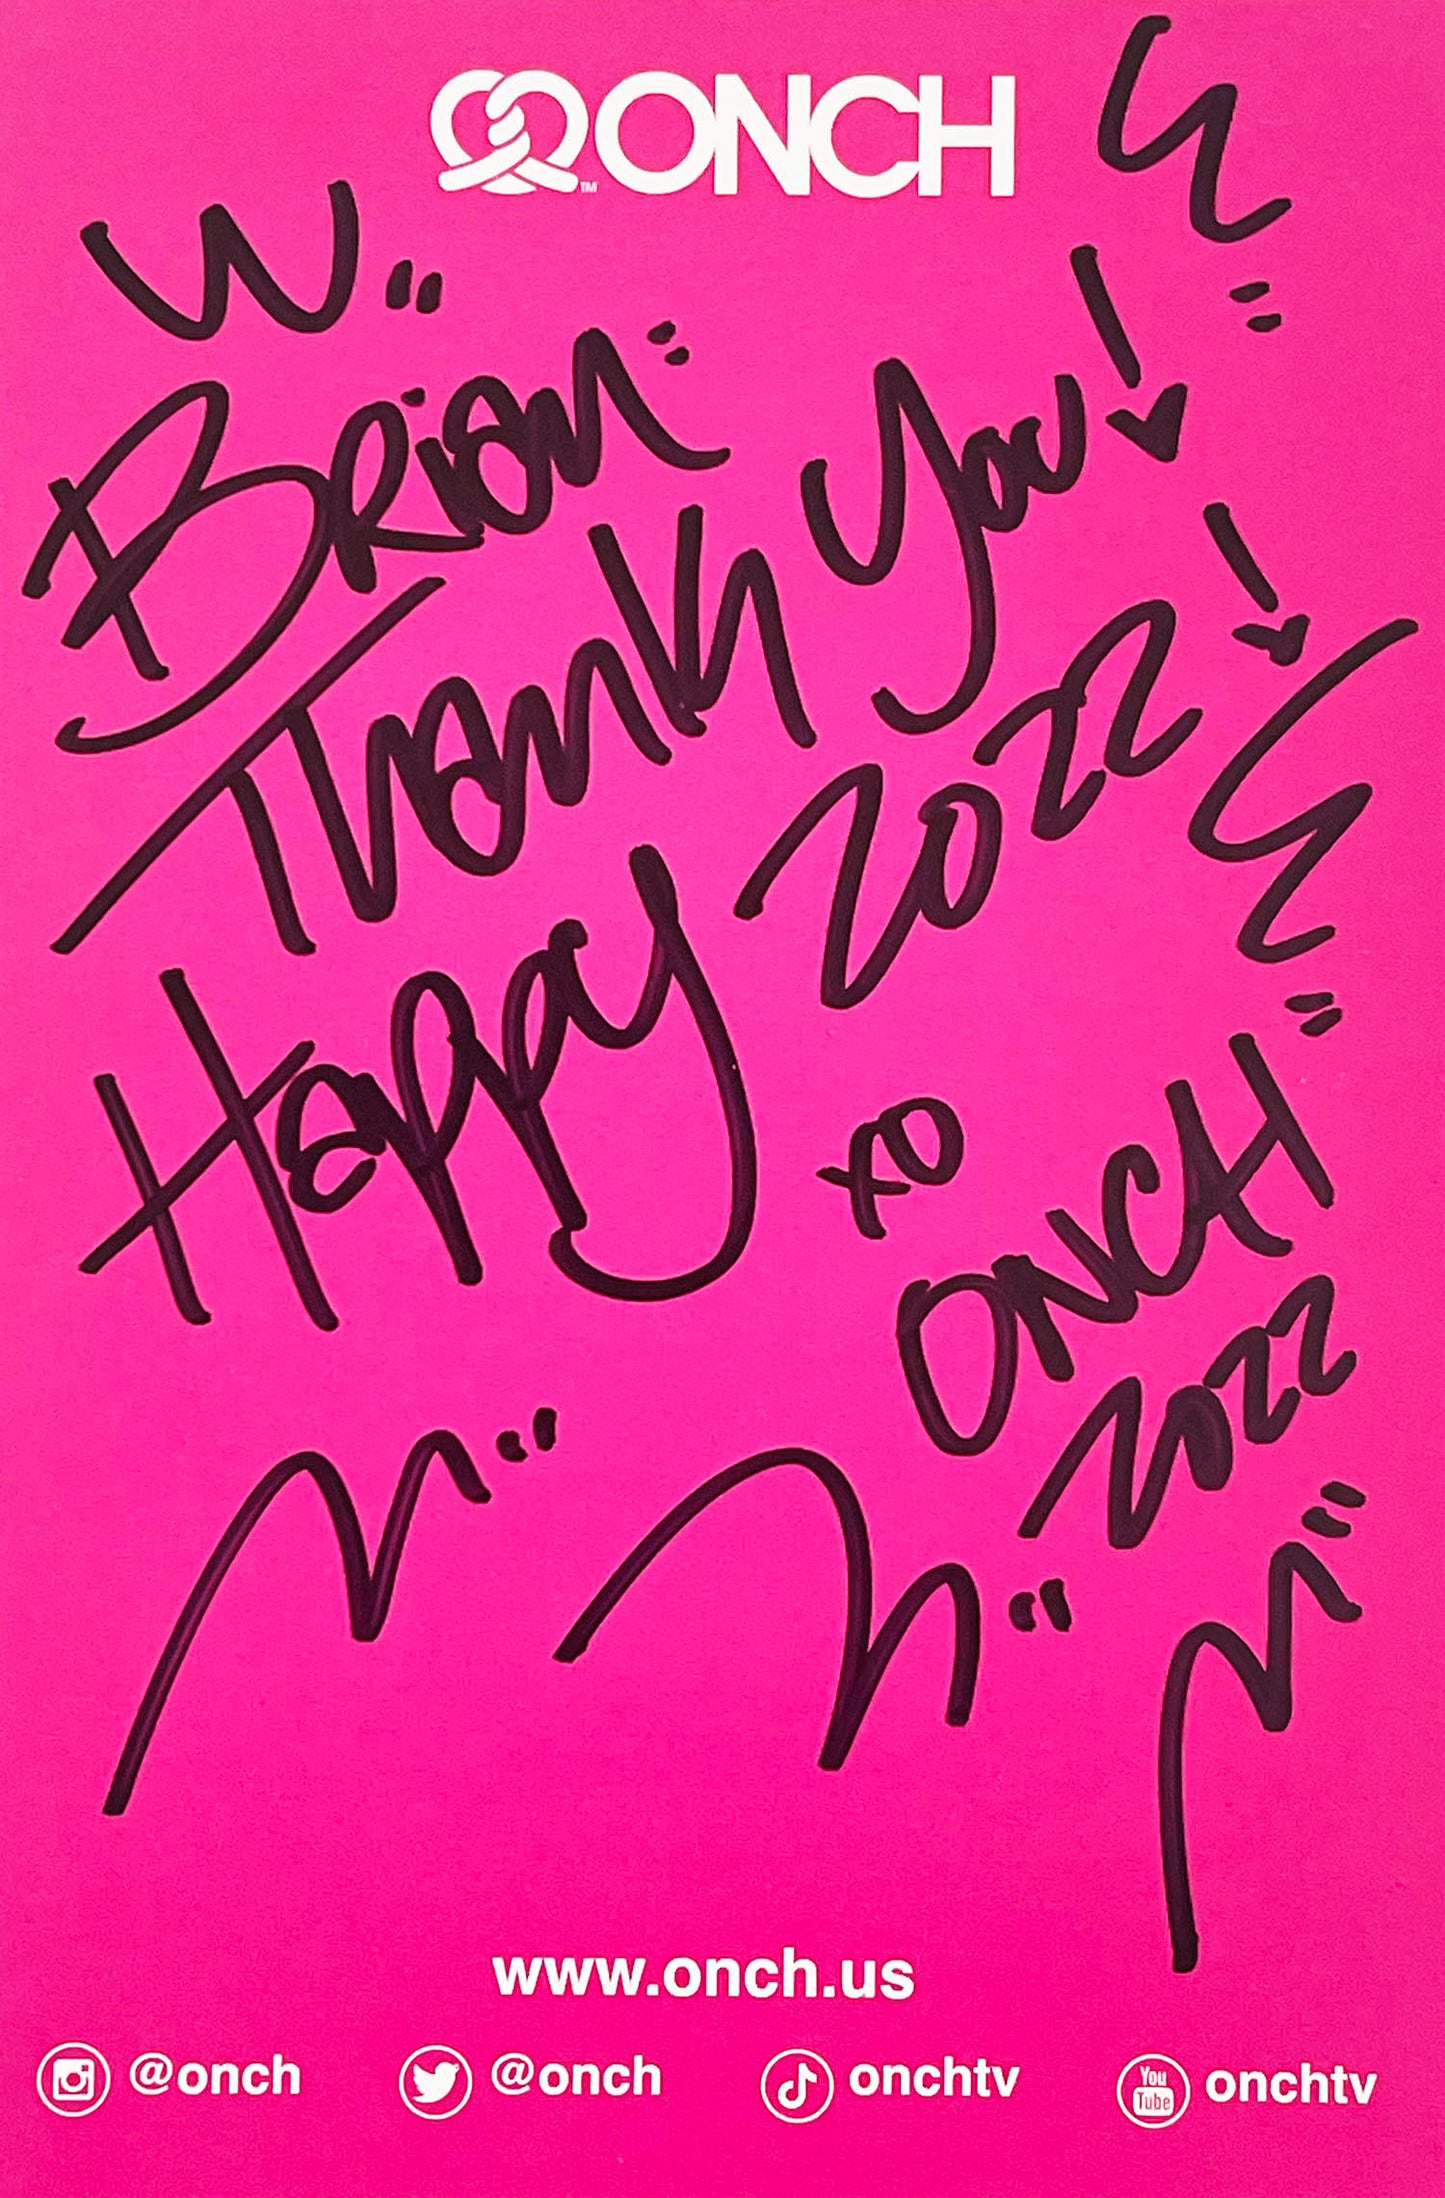 ONCH
TM
Brian
Thank You!
Happy 2022!
xo
ONCH
2022
www.onch.us
@onch
@onch
onchtv
You Tube
onchtv